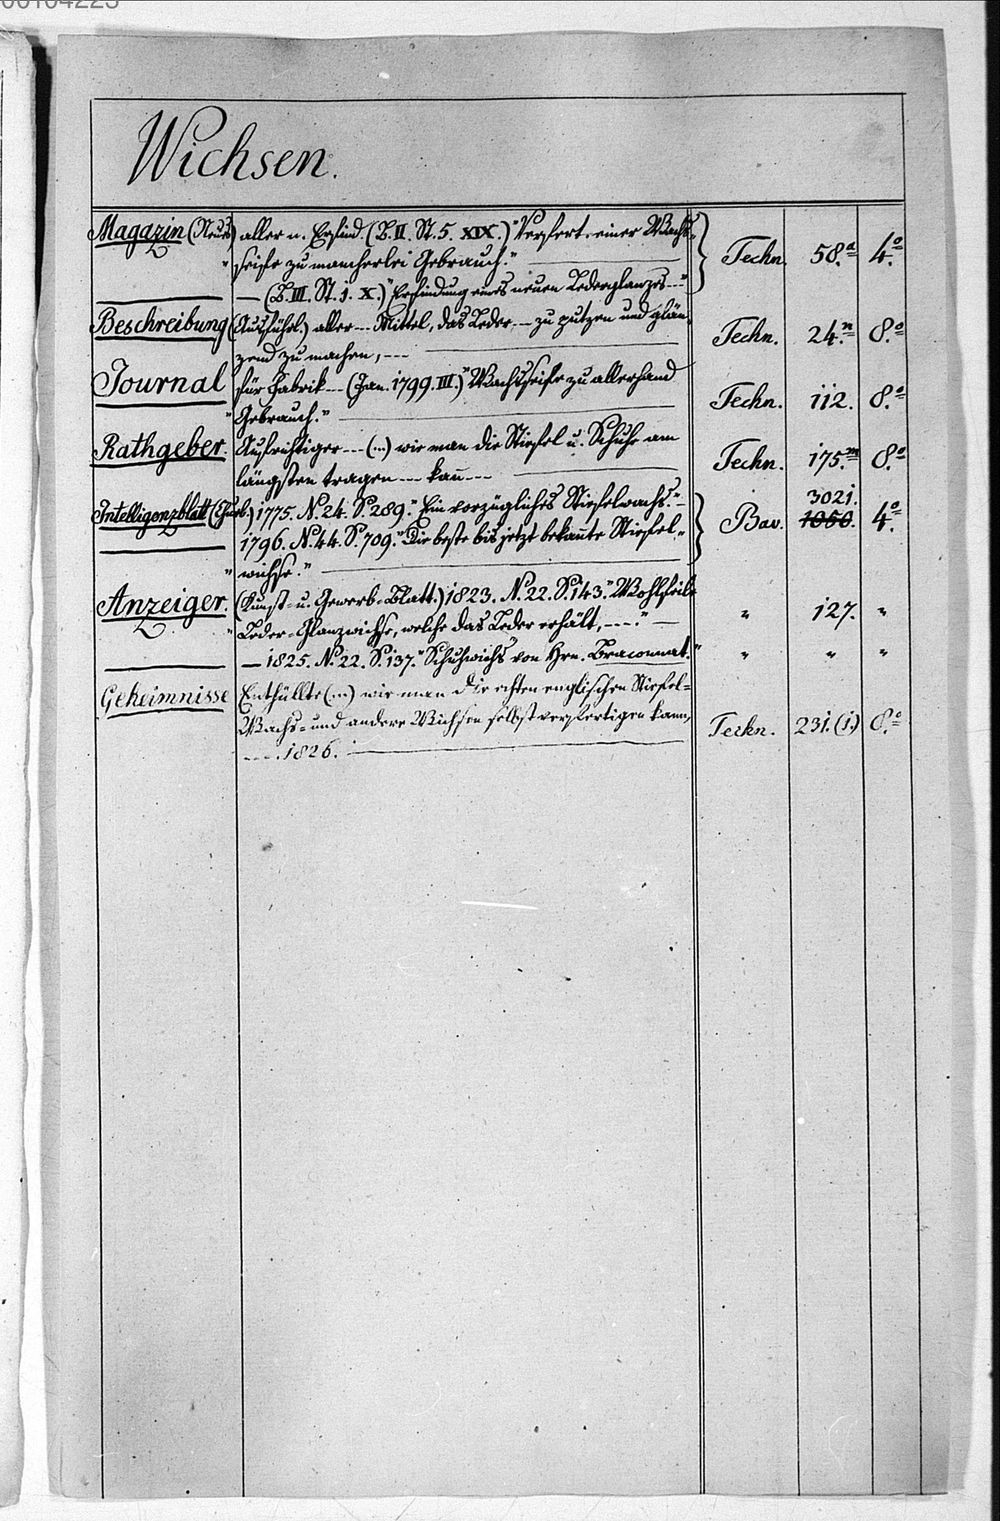 Wichsen.
Magazin (Neues) aller n. Erfind. (B. II. St. 5. XIX.) "Verfert. einer Wachs=
" seife zu mancherlei Gebrauch." Techn. 58.a 4.o
— (B. III. St. 1. X.) "Erfindung eines neuen Lederglanzes---"
Beschreibung (Ausführl.) aller --- Mittel, das Leder --- zu putzen und glän= Techn. 24.n 8.o
zend zu machen, ---
Journal für Fabrik --- (Jan. 1799. III.) "Wachsseife zu allerhand Techn. 112. 8.o
" Gebrauch."
Rathgeber. Aufrichtiger --- (...) wie man die Stiefel u. Schuhe am Techn. 175.m 8.o
längsten tragen --- kan̄ ---
Intelligenzblatt (Churb.) 1775. N. 24. S. 289. "Ein vorzügliches Stiefelwachs." – 3021.
1796. N. 44. S. 709. "Die beste bis jetzt bekan̄te Stiefel= Bav. 1050. 4.o
" wichse."
Anzeiger. (Kunst= u. Gewerb=Blatt.) 1823. N. 22. S. 143. "Wohlfeile " 127. "
" Leder=Glanzwichse, welche das Leder erhält, ---." —
— 1825. N. 22. S. 137. "Schuhwichs von Hrn. Braconnat." " " "
Geheimnisse Enthüllte (...) wie man die echten englischen Stiefel=
Wachs= und andere Wichsen selbst verfertigen kann, Techn. 231.(1.) 8.o
--- 1826.